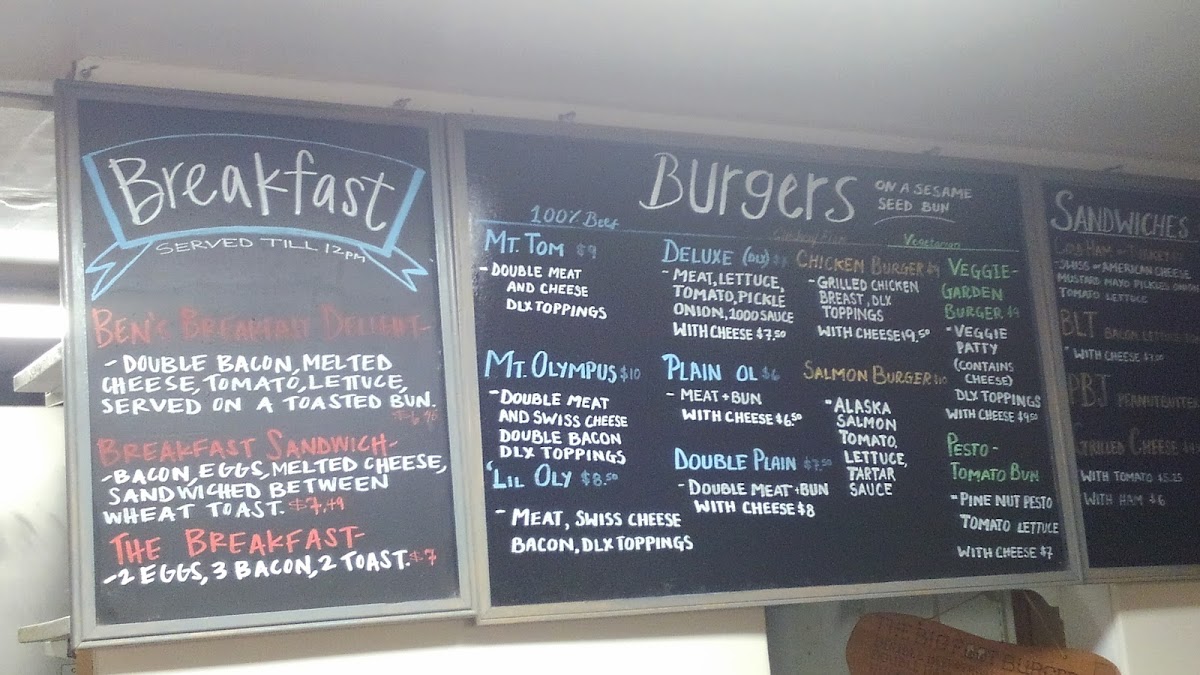 Breakfast
SERVED TILL 12PM
BEN'S BREAKFAST DELIGHT-
- DOUBLE BACON, MELTED
CHEESE, TOMATO, LETTUCE,
SERVED ON A TOASTED BUN.
BREAKFAST SANDWICH-
-BACON, EGGS, MELTED CHEESE,
SANDWICHED BETWEEN
WHEAT TOAST. $7.49
THE BREAKFAST-
-2 EGGS, 3 BACON, 2 TOAST. $7
BURGERS
ON A SESAME
SEED BUN
100% Beef
MT. TOM $9
- DOUBLE MEAT
AND CHEESE
DLX TOPPINGS
MT. OLYMPUS $10
- DOUBLE MEAT
AND SWISS CHEESE
DOUBLE BACON
DLX TOPPINGS
'LIL OLY $8.50
- MEAT, SWISS CHEESE
BACON, DLX TOPPINGS
DELUXE (DLX)
- MEAT, LETTUCE,
TOMATO, PICKLE
ONION, 1000 SAUCE
WITH CHEESE $7.50
PLAIN OL $6
- MEAT + BUN
WITH CHEESE $6.50
DOUBLE PLAIN $7.50
- DOUBLE MEAT + BUN
WITH CHEESE $8
CHICKEN BURGER $9
- GRILLED CHICKEN
BREAST, DLX
TOPPINGS
WITH CHEESE $9.50
SALMON BURGER $10
- ALASKA
SALMON
TOMATO,
LETTUCE,
TARTAR
SAUCE
Vegetarian
VEGGIE-
GARDEN
BURGER $9
- VEGGIE
PATTY
(CONTAINS
CHEESE)
DLX TOPPINGS
WITH CHEESE $9.50
PESTO-
TOMATO BUN
- PINE NUT PESTO
TOMATO LETTUCE
WITH CHEESE $7
SANDWICHES
COLD HAM OR TURKEY
- SWISS OR AMERICAN CHEESE
MUSTARD MAYO PICKLES ONION
TOMATO LETTUCE
BLT BACON LETTUCE
- WITH CHEESE
PBJ PEANUTBUTTER
GRILLED CHEESE
WITH TOMATO $5.25
WITH HAM $6
THE BIG FOOT BURGER